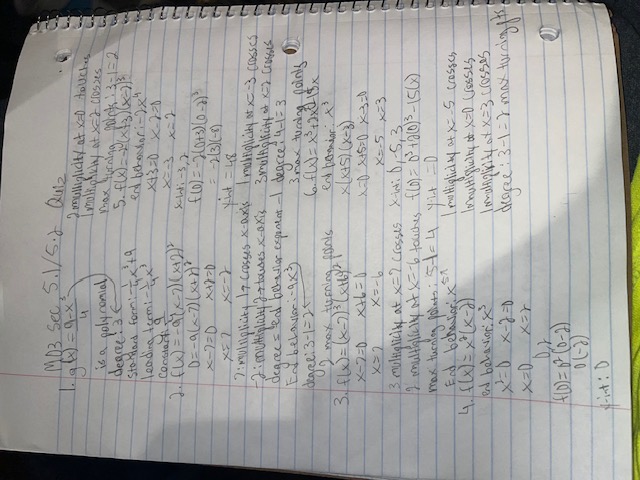 MD3 Sec 5.1/5.2 Quiz
1. g(x) = 9-x³
4
is a polynomial
degree: 3
standard form: -¼x³+9
leading term: -¼x³
constant: 9
2. f(x) = -9(x-7)(x+2)²
0 = -9(x-7)(x+2)²
x-7=0 x+2=0
x=7 x=-2
7: multiplicity 1 → crosses x-axis
-2: multiplicity 2 → touches x-axis
degree = end behavior exponent -1
End behavior: -9x³
degree: 3-1=2
2 max turning points
3. f(x) = (x-7)³(x+6)²
x-7=0 x+6=0
x=7 x=-6
3 multiplicity at x=7 crosses
2 multiplicity at x=-6 touches
max turning points: 5-1=4
End behavior: x⁵
4. f(x) = x²(x-2)
end behavior: x³
x²=0 x-2=0
x=0 x=2
0,2
f(0) = 0²(0-2)
0(-2)
y-int: 0
2 multiplicity at x=0 touches
1 multiplicity at x=2 crosses
max turning points: 3-1=2
5. f(x) = -2(x+3)(x-2)³
end behavior: -2x⁴
x+3=0 x-2=0
x=-3 x=2
x-int: -3,2
f(0) = -2(0+3)(0-2)³
= -2(3)(-8)
y-int = 48
1 multiplicity at x=-3 crosses
3 multiplicity at x=2 crosses
degree: 4-1=3
3 max turning points
6. f(x) = x³+2x²-15x
end behavior: x³
x(x+5)(x-3)
x=0 x+5=0 x-3=0
x=-5 x=3
x-int: 0,-5,3
f(0) = 0³+2(0)²-15(x)
y-int =0
1 multiplicity at x=-5 crosses
1 multiplicity at x=0 crosses
1 multiplicity at x=3 crosses
degree: 3-1=2 max turning pts